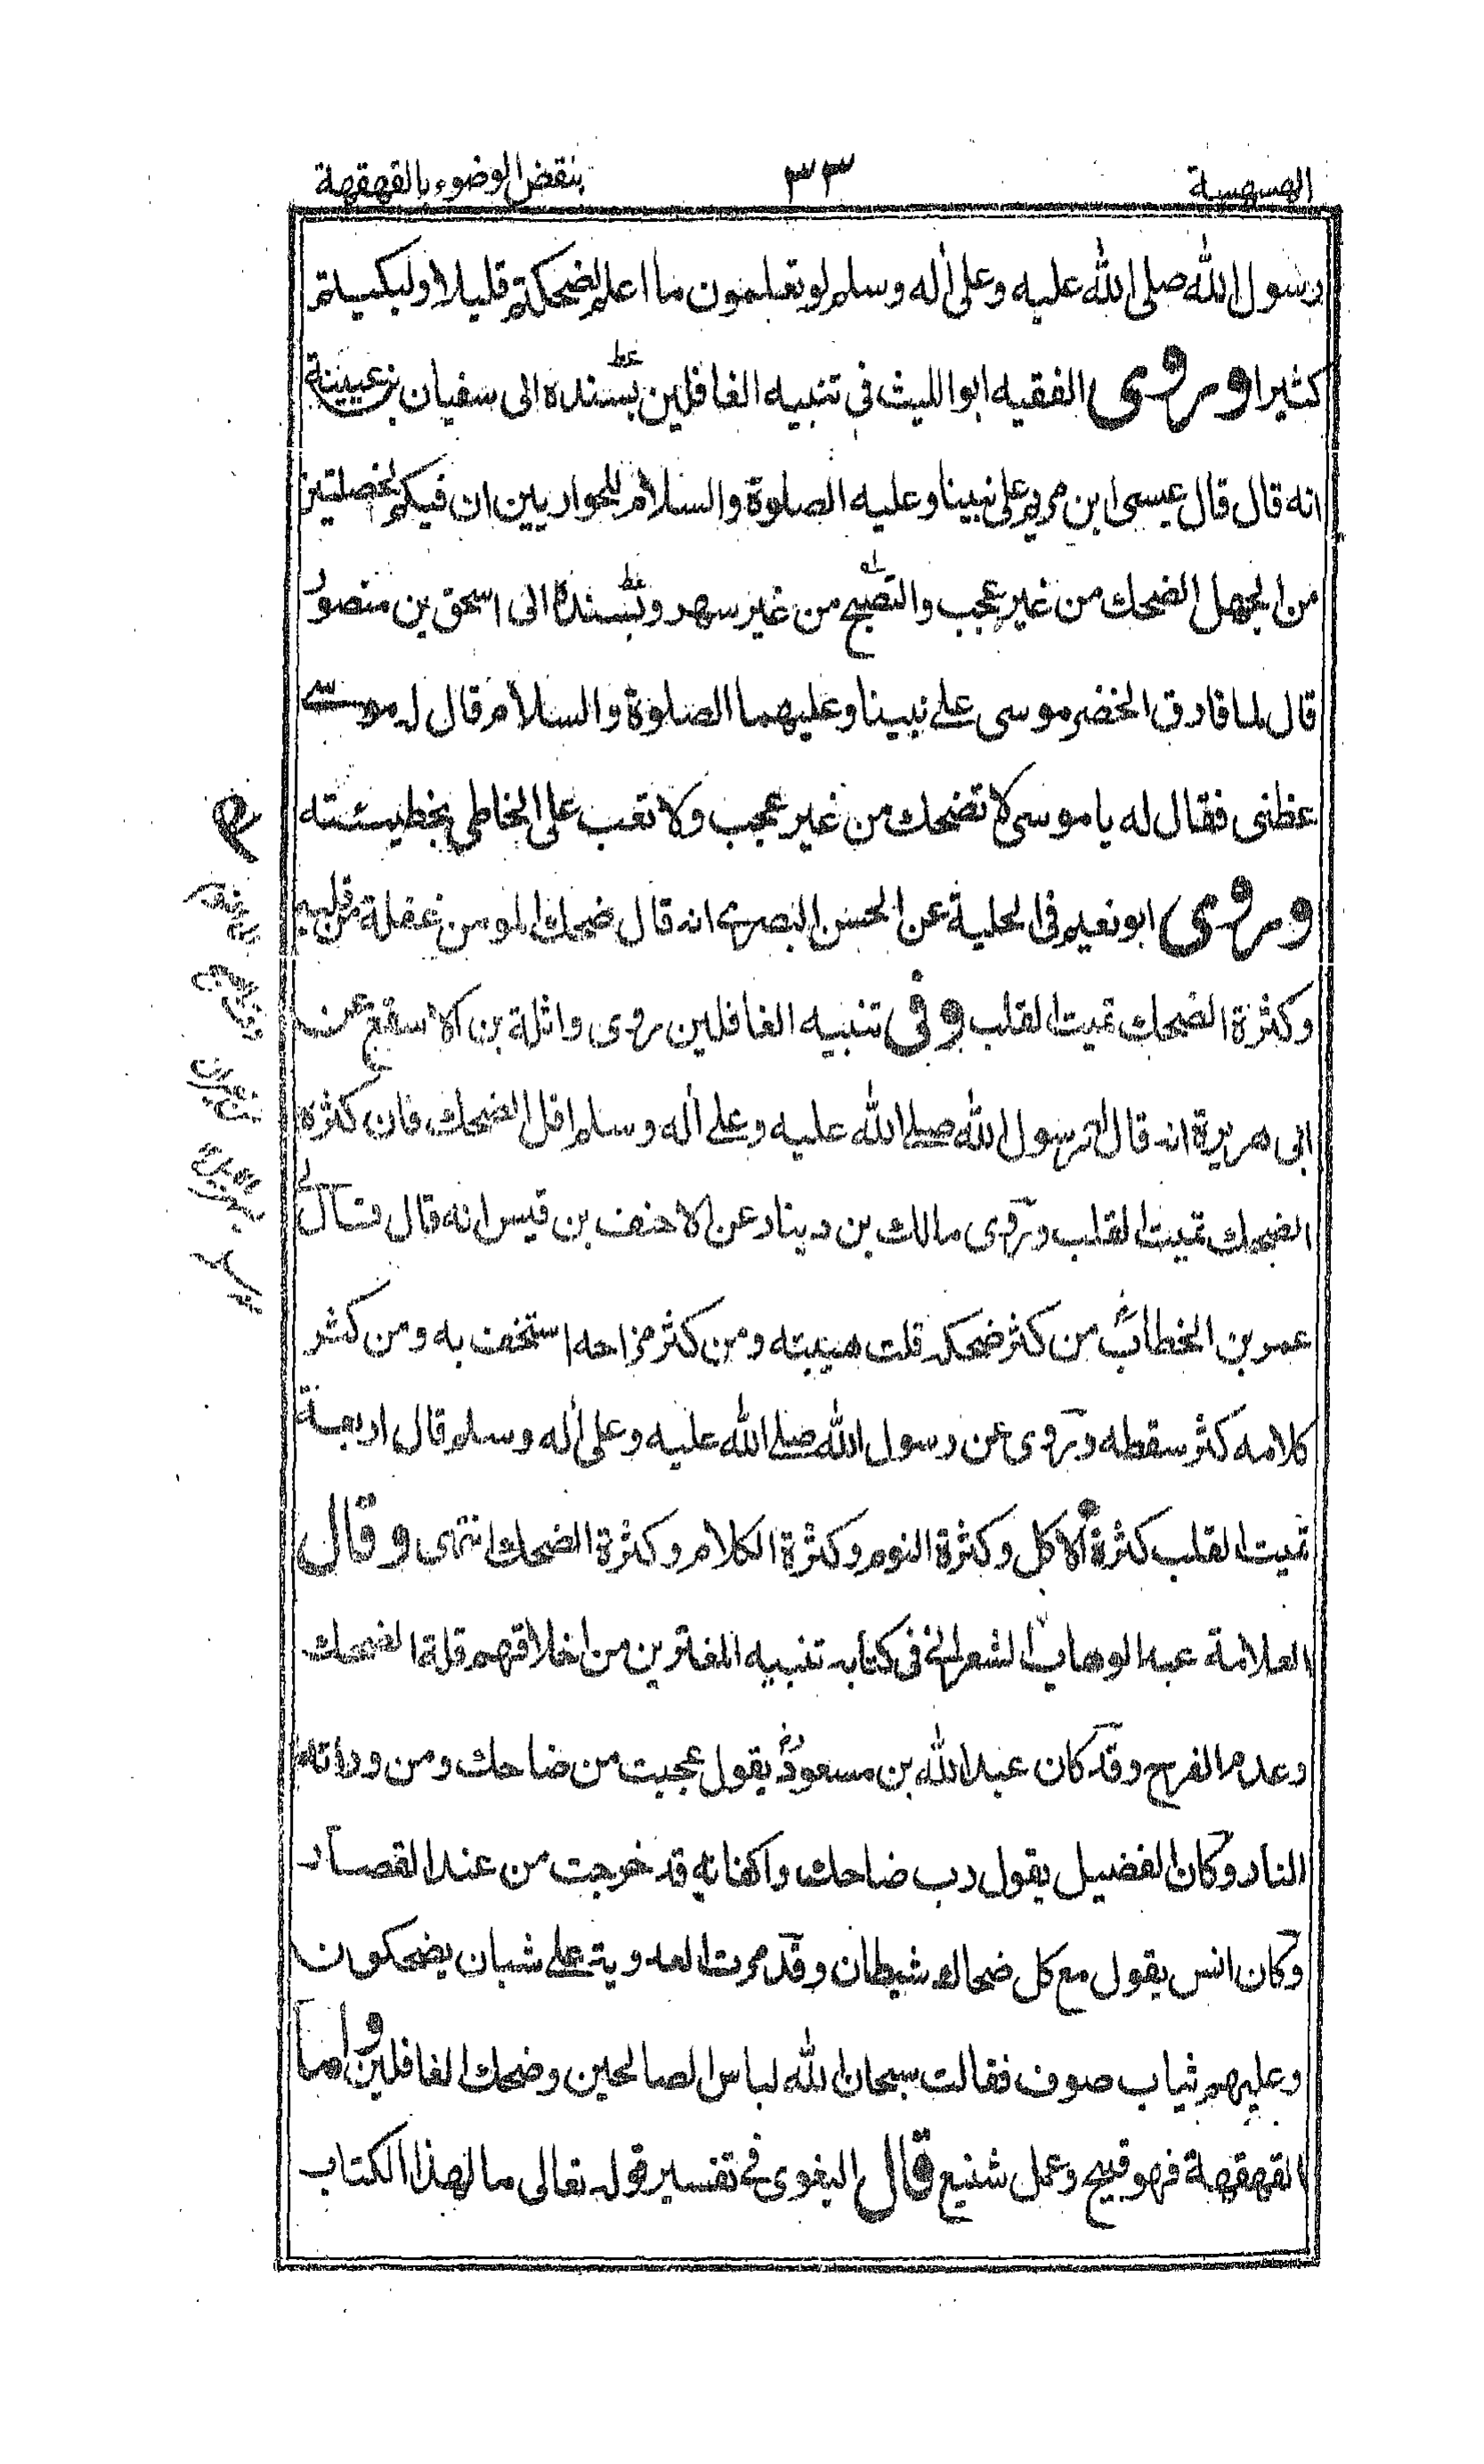 الهسهسة ٣٣ بنقض الوضوء بالقهقهة
رسول الله صلى الله عليه وعلى أله وسلم لو تعلمون ما اعلم لضحكتم قليلا ولبكيتم
كثيرا وروى الفقيه ابو الليث فى تنبيه الغافلين بسنده الى سفيان بن عيينة
انه قال قال عيسى ابن مريم على نبينا وعليه الصلوة والسلام للحواريين ان فيكم لخصلتين
من الجهل الضحك من غير عجب والتصبح من غير سهر وبسنده الى اسحق بن منصور
قال لما فارق الخضر موسى على نبينا وعليهما الصلوة والسلام قال له موسى
عظنى فقال له يا موسى لا تضحك من غير عجب ولا تعب على الخاطى بخطيئته
وروى ابو نعيم فى الحلية عن الحسن البصرى انه قال ضحك المومن غفلة من قلبه
وكثرة الضحك تميت القلب وفى تنبيه الغافلين روى واثلة بن الاسقع عن
ابى هريرة انه قال رسول الله صلى الله عليه وعلى أله وسلم اقل الضحك فان كثرة
الضحك تميت القلب وروى مالك بن دينار عن الاحنف بن قيس انه قال قال لى
عمر بن الخطاب من كثر ضحكه قلت هيبته ومن كثر مزاحه استخف به ومن كثر
كلامه كثر سقطه وروى عن رسول الله صلى الله عليه وعلى أله وسلم قال اربعة
تميت القلب كثرة الاكل وكثرة النوم وكثرة الكلام وكثرة الضحك انتهى وقال
العلامة عبد الوهاب الشعرانى فى كتابه تنبيه المغترين من اخلاقهم قلة الضحك
وعدم الفرح وقد كان عبد الله بن مسعود يقول عجبت من ضاحك ومن ورائه
النار وكان الفضيل يقول رب ضاحك واكفانه قد خرجت من عند القصار
وكان انس يقول مع كل ضحاك شيطان وقد مرت العدوية على شبان يضحكون
وعليهم ثياب صوف فقالت سبحان الله لباس الصالحين وضحك الغافلين واما
القهقهة فهو قبيح وعمل شنيع قال البغوى فى تفسير قوله تعالى ما لهذا الكتاب